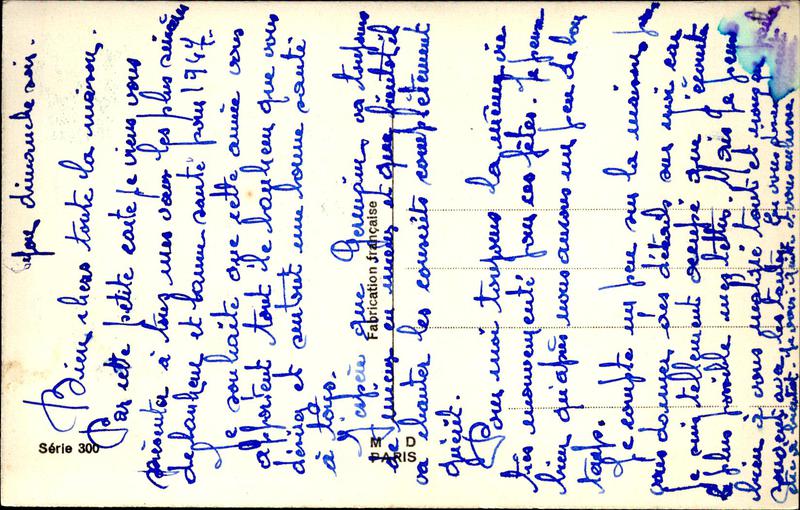 Lyon, dimanche soir.
Bien chers toute la maison.
Par cette petite carte je viens vous
présenter à tous mes vœux les plus sincères
de bonheur et bonne santé pour 1947.
Je souhaite que cette année vous
apportent tout le bonheur que vous
désirez et surtout une bonne santé
à tous.
J'espère que Germain va toujours
de mieux en mieux et que bientôt il
va chanter les couplets complètement
guérit.
Pour moi toujours la même vie
très mouvementé pour ces fêtes. Je pense
bien qu'après nous aurons un peu de bon
temps.
Je compte un peu sur la maison pour
vous donner des détails sur moi car
je suis tellement occupé que j'écourte
le plus possible mes lettres. Mais je pense
bien à vous malgré tout et mon
En vous
Série 300
Fabrication française
M D
PARIS